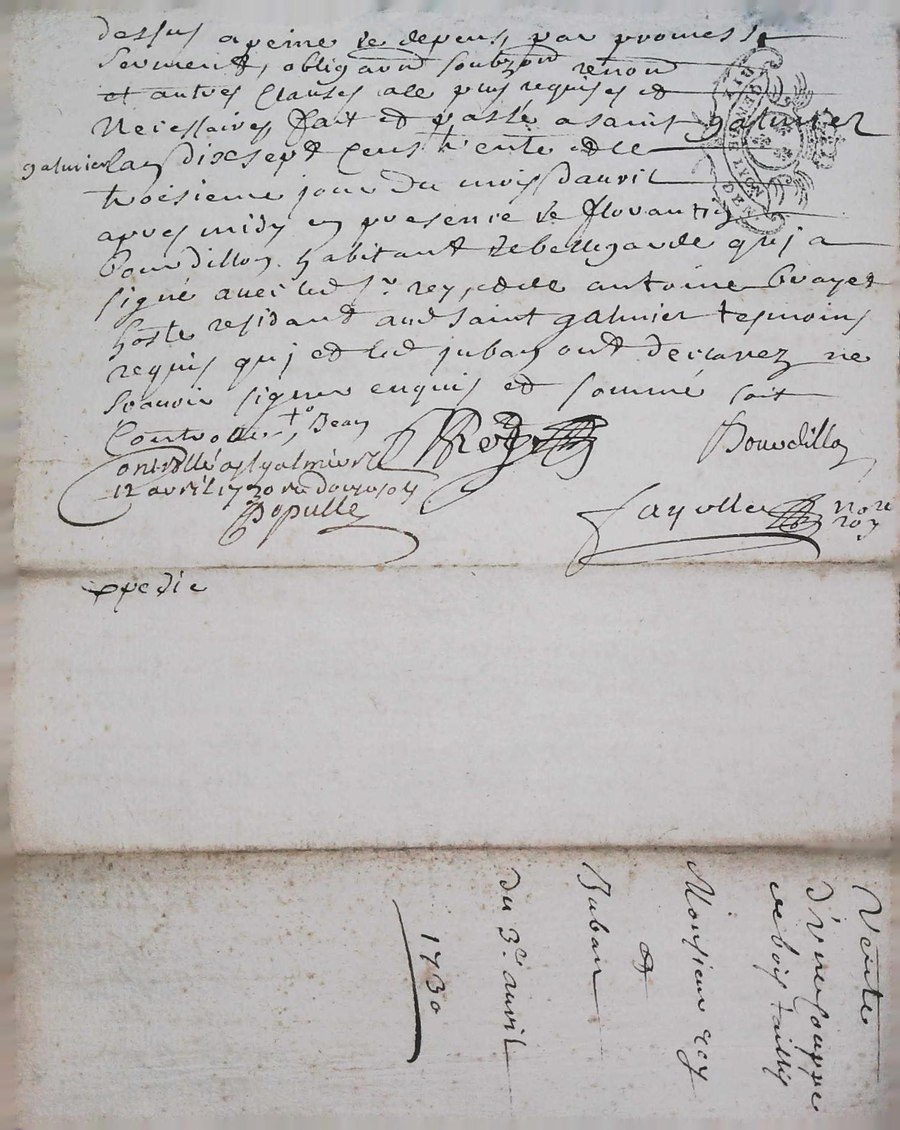 dessus a peine de depens par promesse
serment, obligaon soubzon renon
et autres clauses ale plus requises et
Necessaires fait et passé a saint galmier
galmier lan dix sept cens trente et le
troisieme jour du mois davril
apres midy en presence de florantin
Bourdillon habitant de bellegarde qui a
signé avec led sr rey, et de antoine
hoste residant aud saint galmier tesmoins
requis qui et led juban ont declarez ne
scavoir signer enquis et sommé soit
Controllé Jean
Rey
Bourdillon
Controllé a st galmier le
12 avril 1730 re douze s
Populle
fayolle no re
roy
expedié
Vente
d'une couppe
de bois taillis
Monsieur rey
et
Juban
du 3e avril
1730